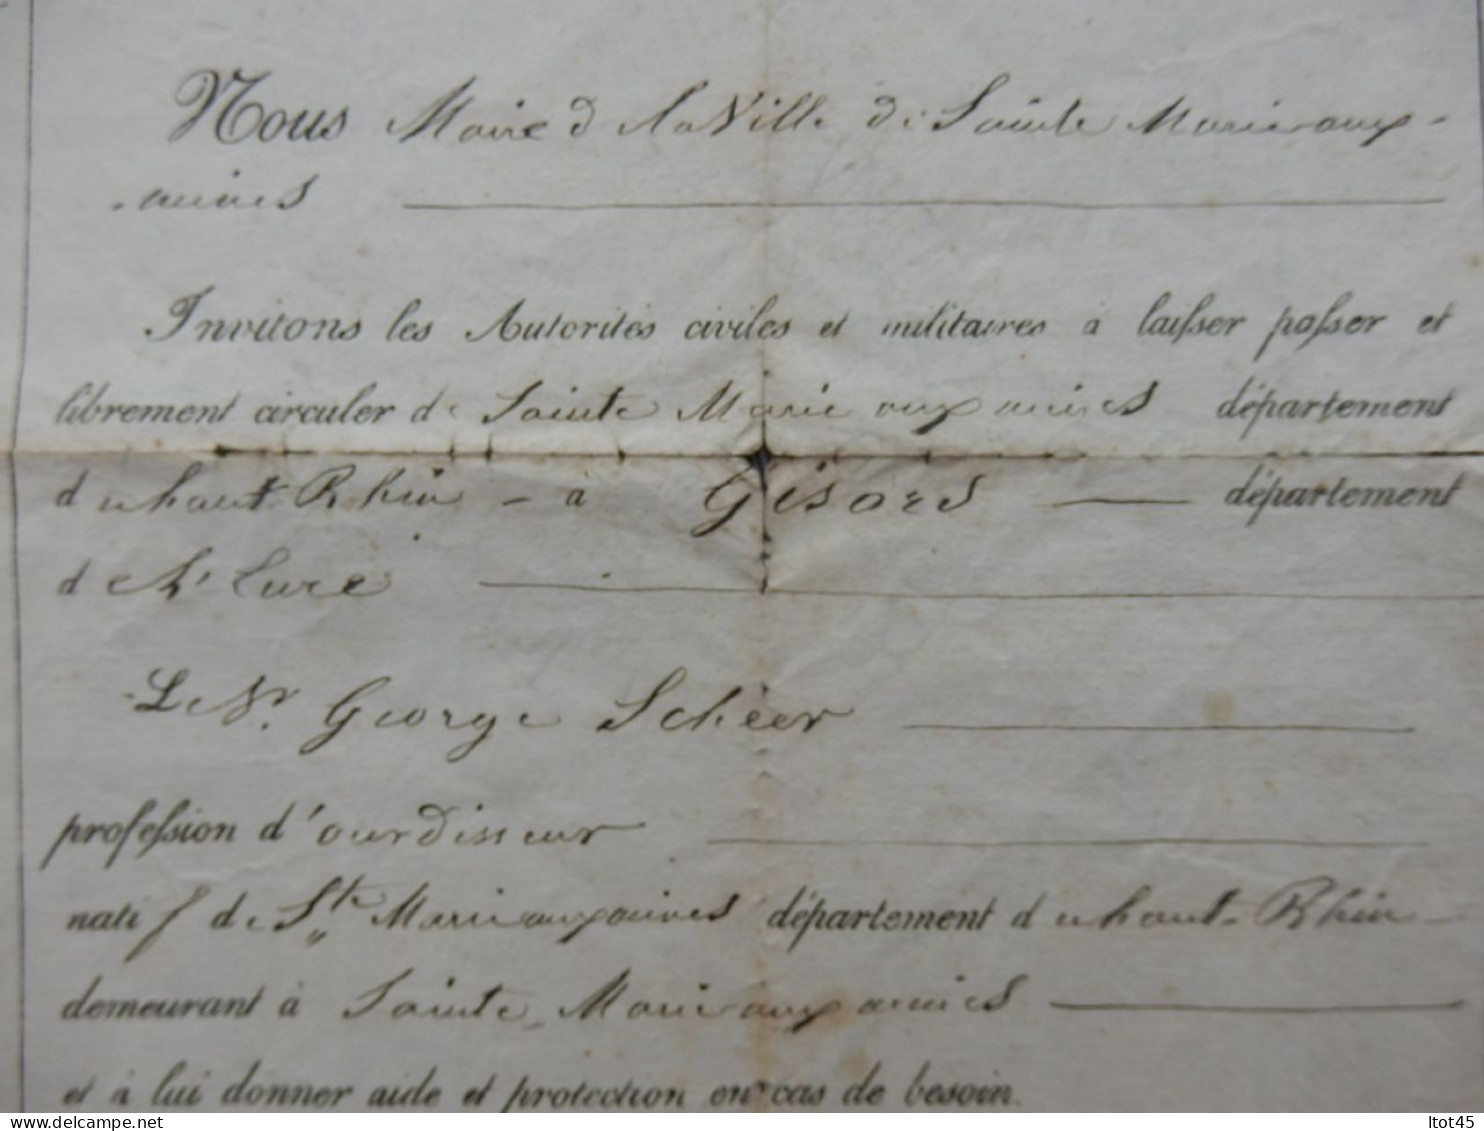 Nous Maire de la Ville de Sainte Marie-aux-
-mines
Invitons les Autorités civiles et militaires à laisser passer et
librement circuler de Sainte Marie aux mines département
du haut-Rhin - à Gisors département
de l'Eure
Le Sr. George Scheer
profession d'ourdisseur
natif de Ste Marie aux mines département du haut-Rhin
demeurant à Sainte-Marie aux mines
et à lui donner aide et protection en cas de besoin.
ltot45